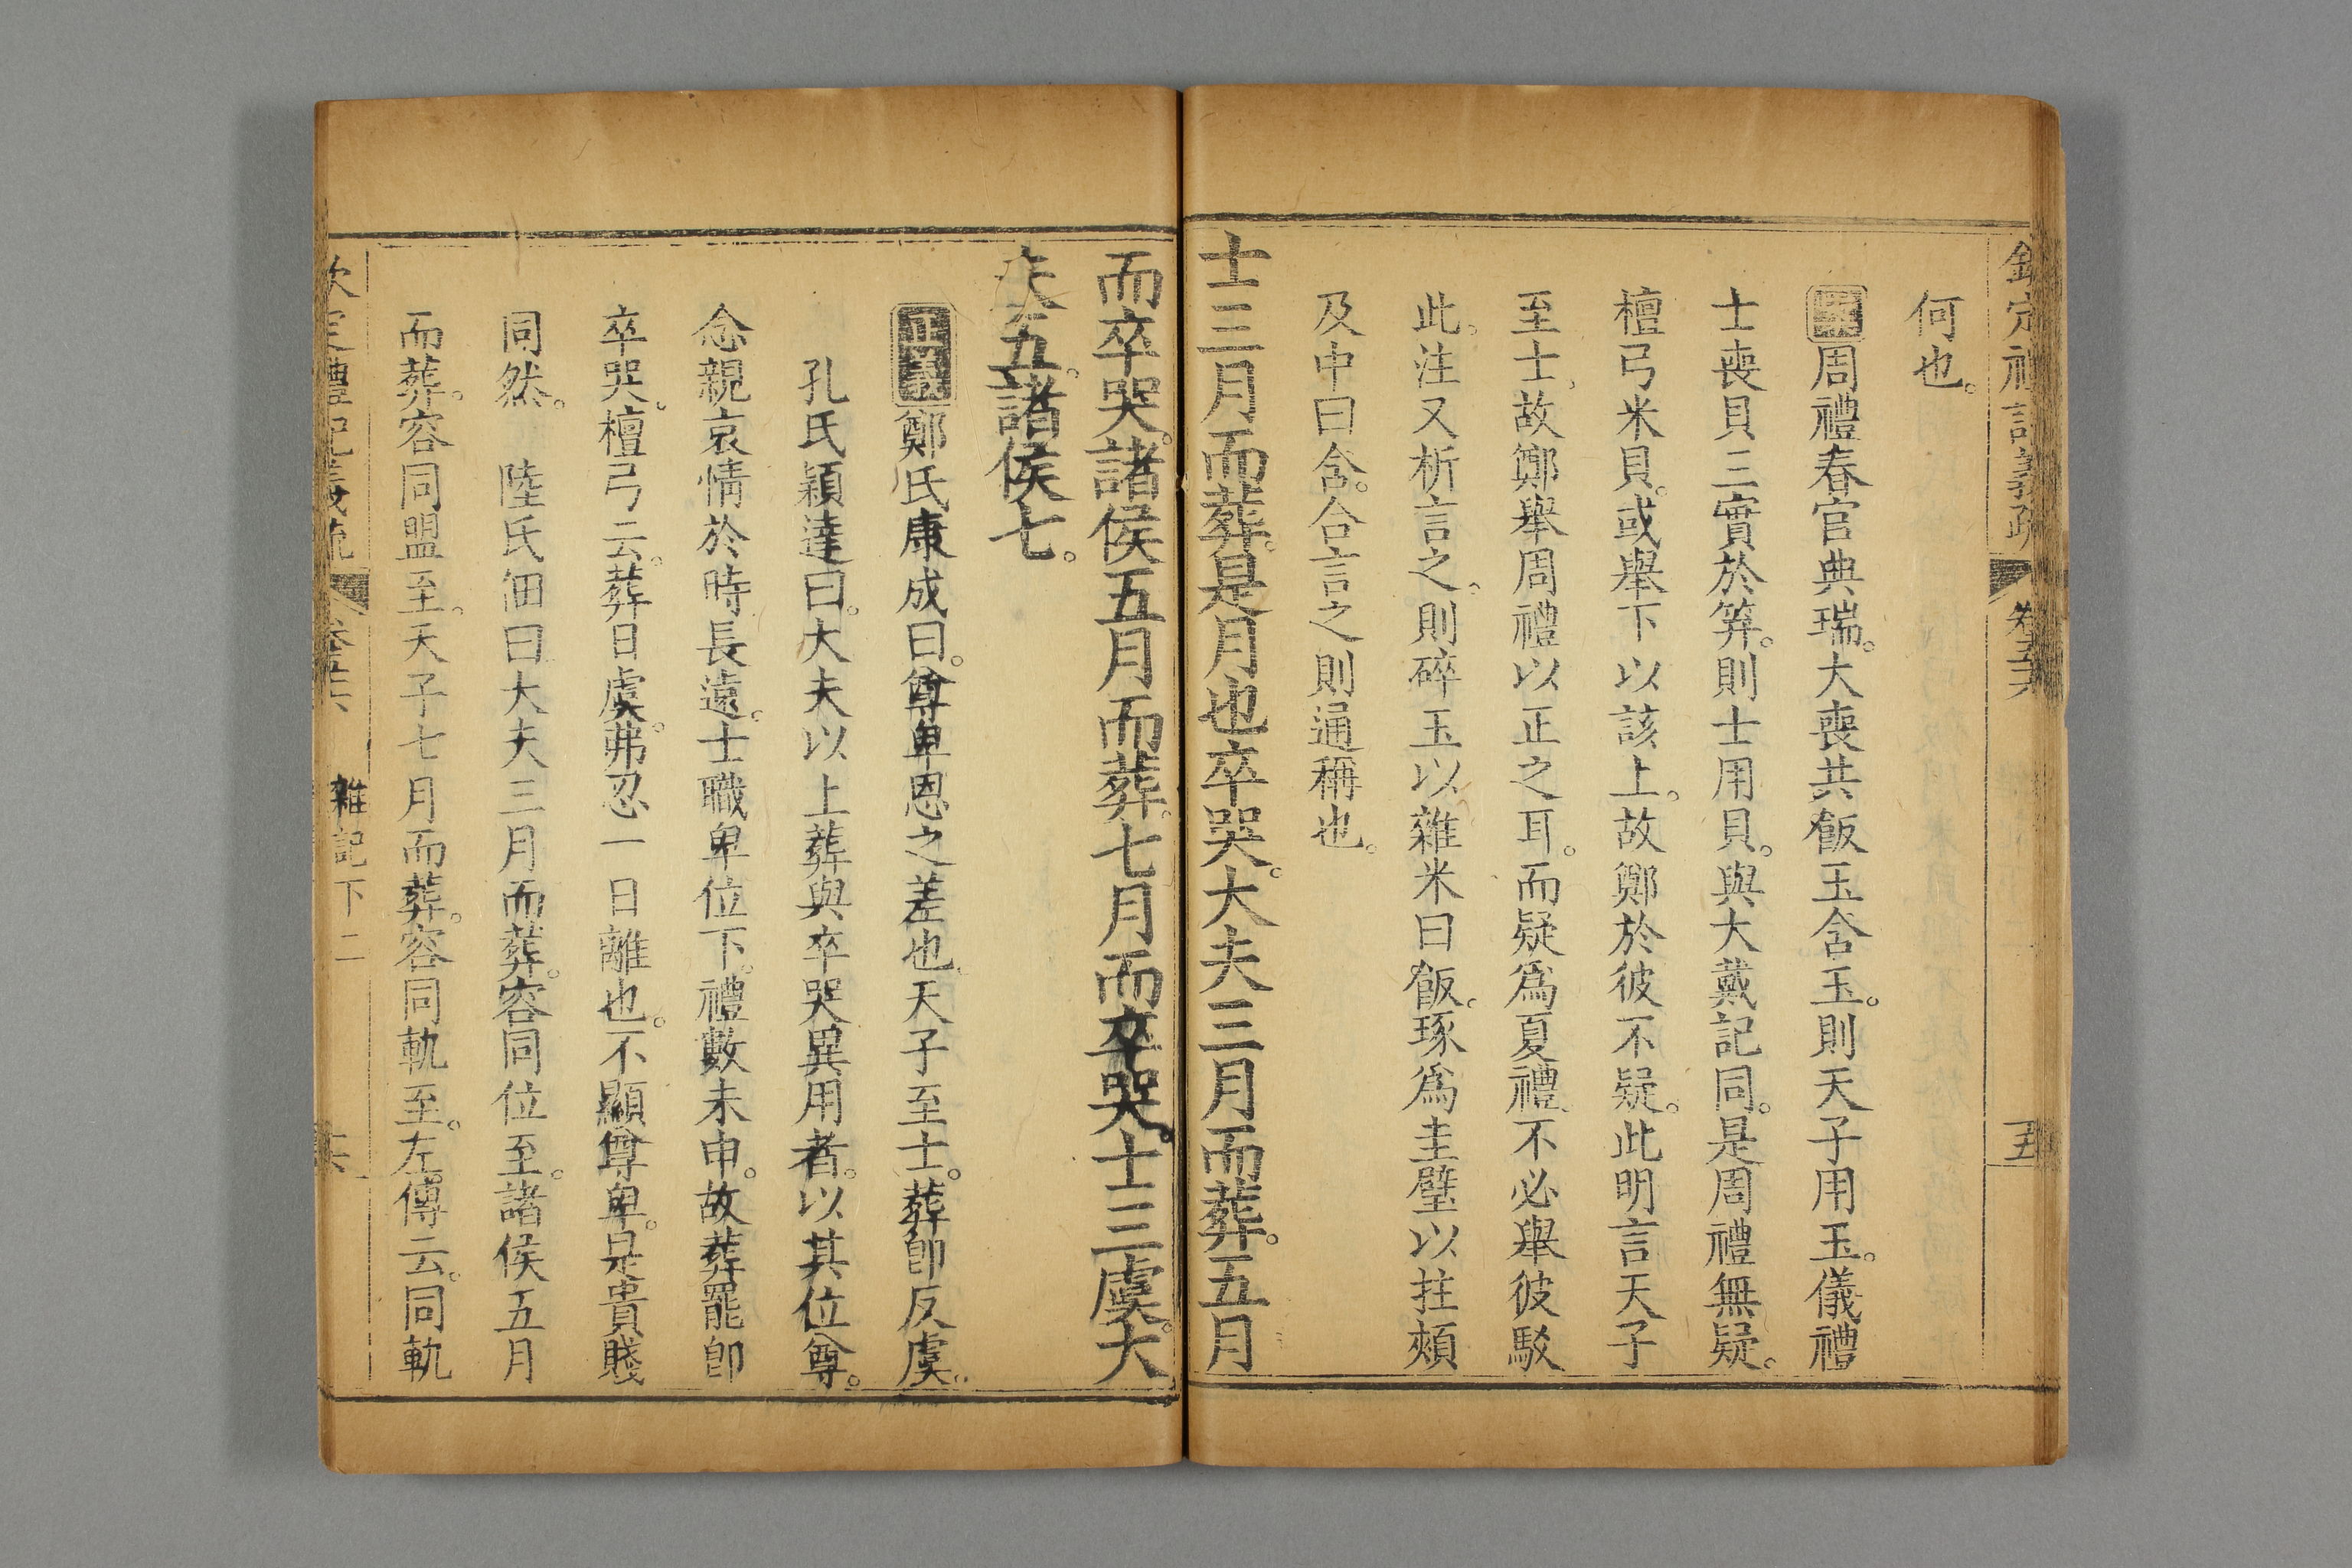 欽定禮記義疏 卷五十六 五
何也。
案周禮春官典瑞。大喪共飯玉含玉。則天子用玉。儀禮
士喪貝三實於笲。則士用貝。與大戴記同。是周禮無疑。
檀弓米貝。或舉下以該上。故鄭於彼不疑。此明言天子
至士、故鄭舉周禮以正之耳。而疑為夏禮。不必舉彼駁
此。注又析言之。則碎玉以雜米曰飯。琢為圭璧以拄頰
及中曰含。合言之則通稱也。
士三月而葬。是月也卒哭。大夫三月而葬。五月
而卒哭。諸侯五月而葬。七月而卒哭。士三虞。大
夫五。諸侯七。
正義鄭氏康成曰。尊卑恩之差也。天子至士。葬卽反虞。
孔氏穎達曰。大夫以上葬與卒哭異用者。以其位尊。
念親哀情於時長遠。士職卑位下。禮數未申。故葬罷卽
卒哭。檀弓云。葬日虞。弗忍一日離也。不顯尊卑。是貴賤
同然。 陸氏佃曰大夫三月而葬。容同位至。諸侯五月
而葬。容同盟至。天子七月而葬。容同軌至。左傳云。同軌
欽定禮記義疏 卷五十六 雜記下二 六